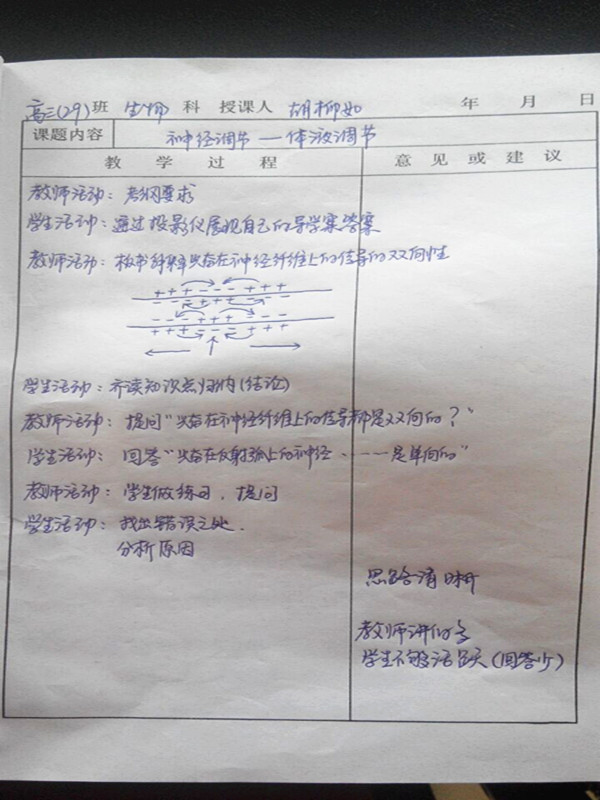 高三(29)班 生物 科 授课人 胡柳如 年 月 日
课题内容 神经调节—体液调节
教学过程 意见或建议
教师活动：考纲要求
学生活动：通过投影仪展现自己的导学案答案
教师活动：板书解释兴奋在神经纤维上的传导的双向性
+ + + - - - + + +
- - - + + + - - -
- - - + + + - - -
+ + + - - - + + +
学生活动：齐读知识点归纳(结论)
教师活动：提问"兴奋在神经纤维上的传导都是双向的？"
学生活动：回答"兴奋在反射弧上的神经……是单向的"
教师活动：学生做练习，提问
学生活动：找出错误之处.
分析原因
思路清晰
教师讲的多
学生不够活跃(回答少)